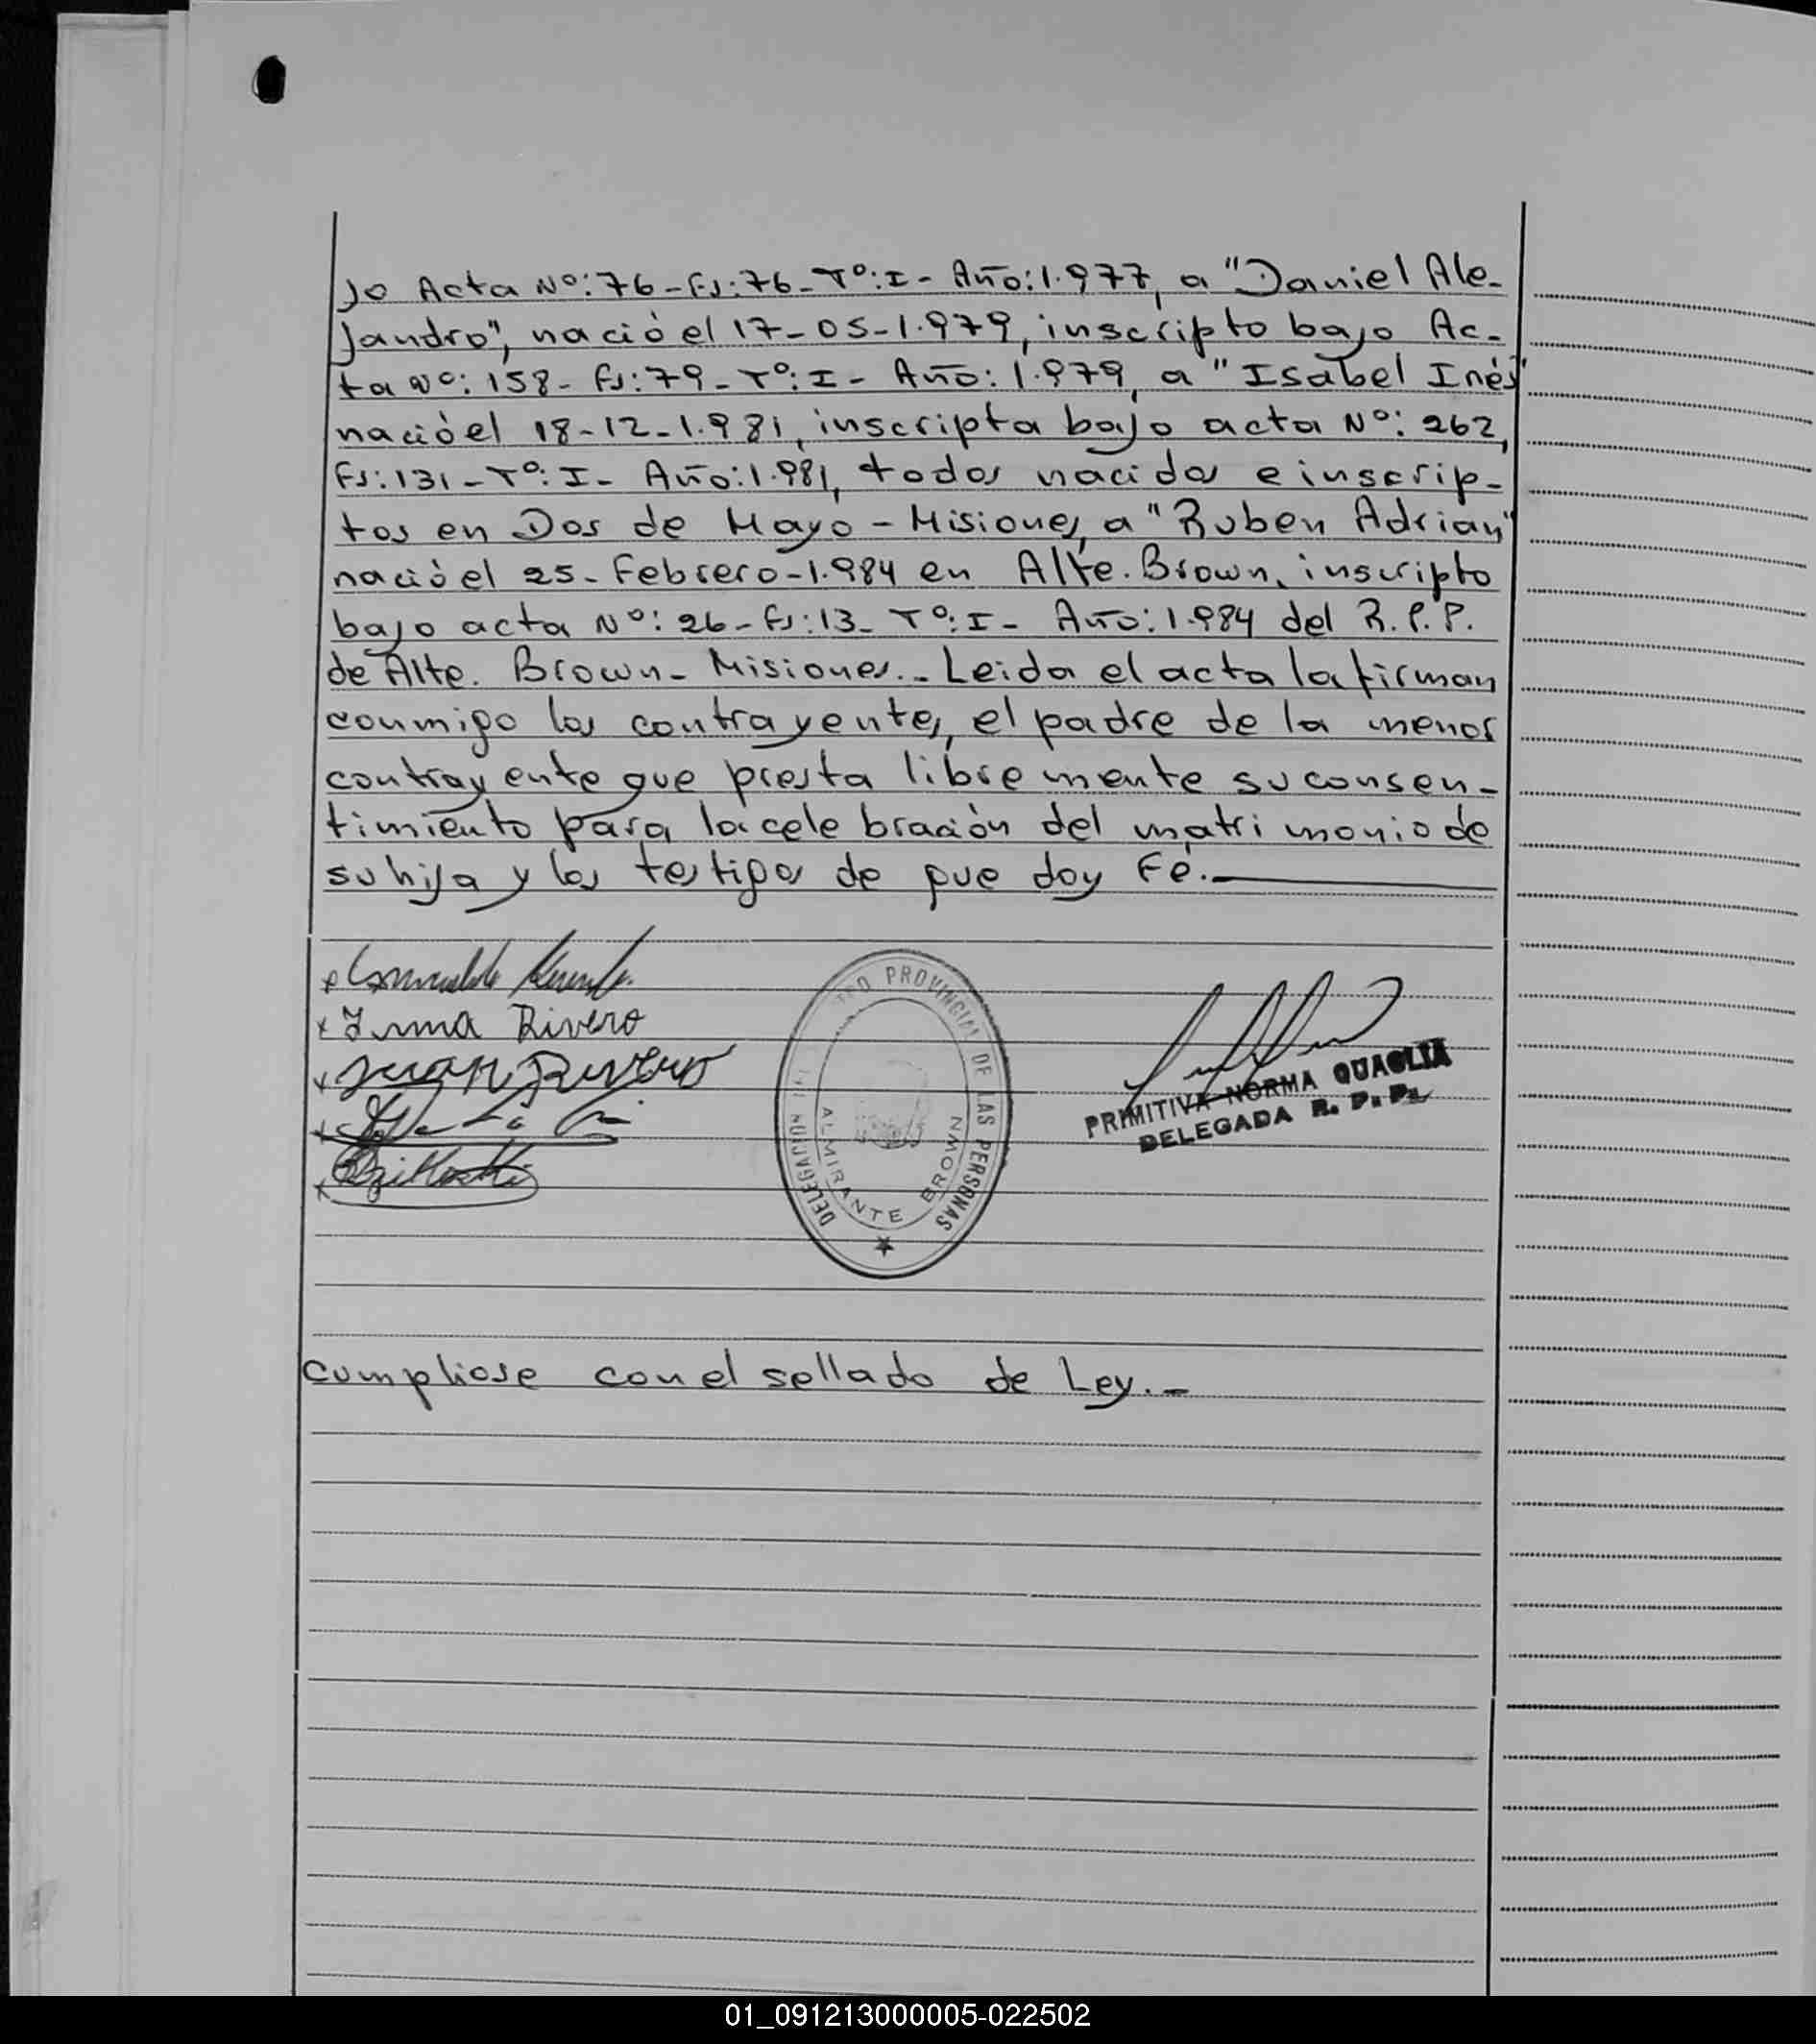 jo Acta Nº: 76 - Fs: 76 - Tº: I - Año: 1.977, a "Daniel Ale-
jandro", nació el 17-05-1.979, inscripto bajo Ac-
ta Nº: 158 - Fs: 79 - Tº: I - Año: 1.979, a "Isabel Inés"
nació el 18-12-1.981, inscripta bajo acta Nº: 262,
Fs: 131 - Tº: I - Año: 1.981, todos nacidos e inscrip-
tos en Dos de Mayo - Misiones, a "Ruben Adrian"
nació el 25-Febrero-1.984 en Alte. Brown, inscripto
bajo acta Nº: 26 - Fs: 13 - Tº: I - Año: 1.984 del R.P.P.
de Alte. Brown - Misiones.- Leida el acta la firman
conmigo los contrayentes, el padre de la menor
contrayente que presta libremente su consen-
timiento para la celebración del matrimonio de
su hija y los testigos de que doy Fé.
x
x Irma Rivero
x Juan Rivero
x
x
DELEGACION PROVINCIAL DE LAS PERSONAS
ALMIRANTE BROWN
PRIMITIVA NORMA QUAGLIA
DELEGADA R. P. P.
Cumpliose con el sellado de Ley.-
01_091213000005-022502